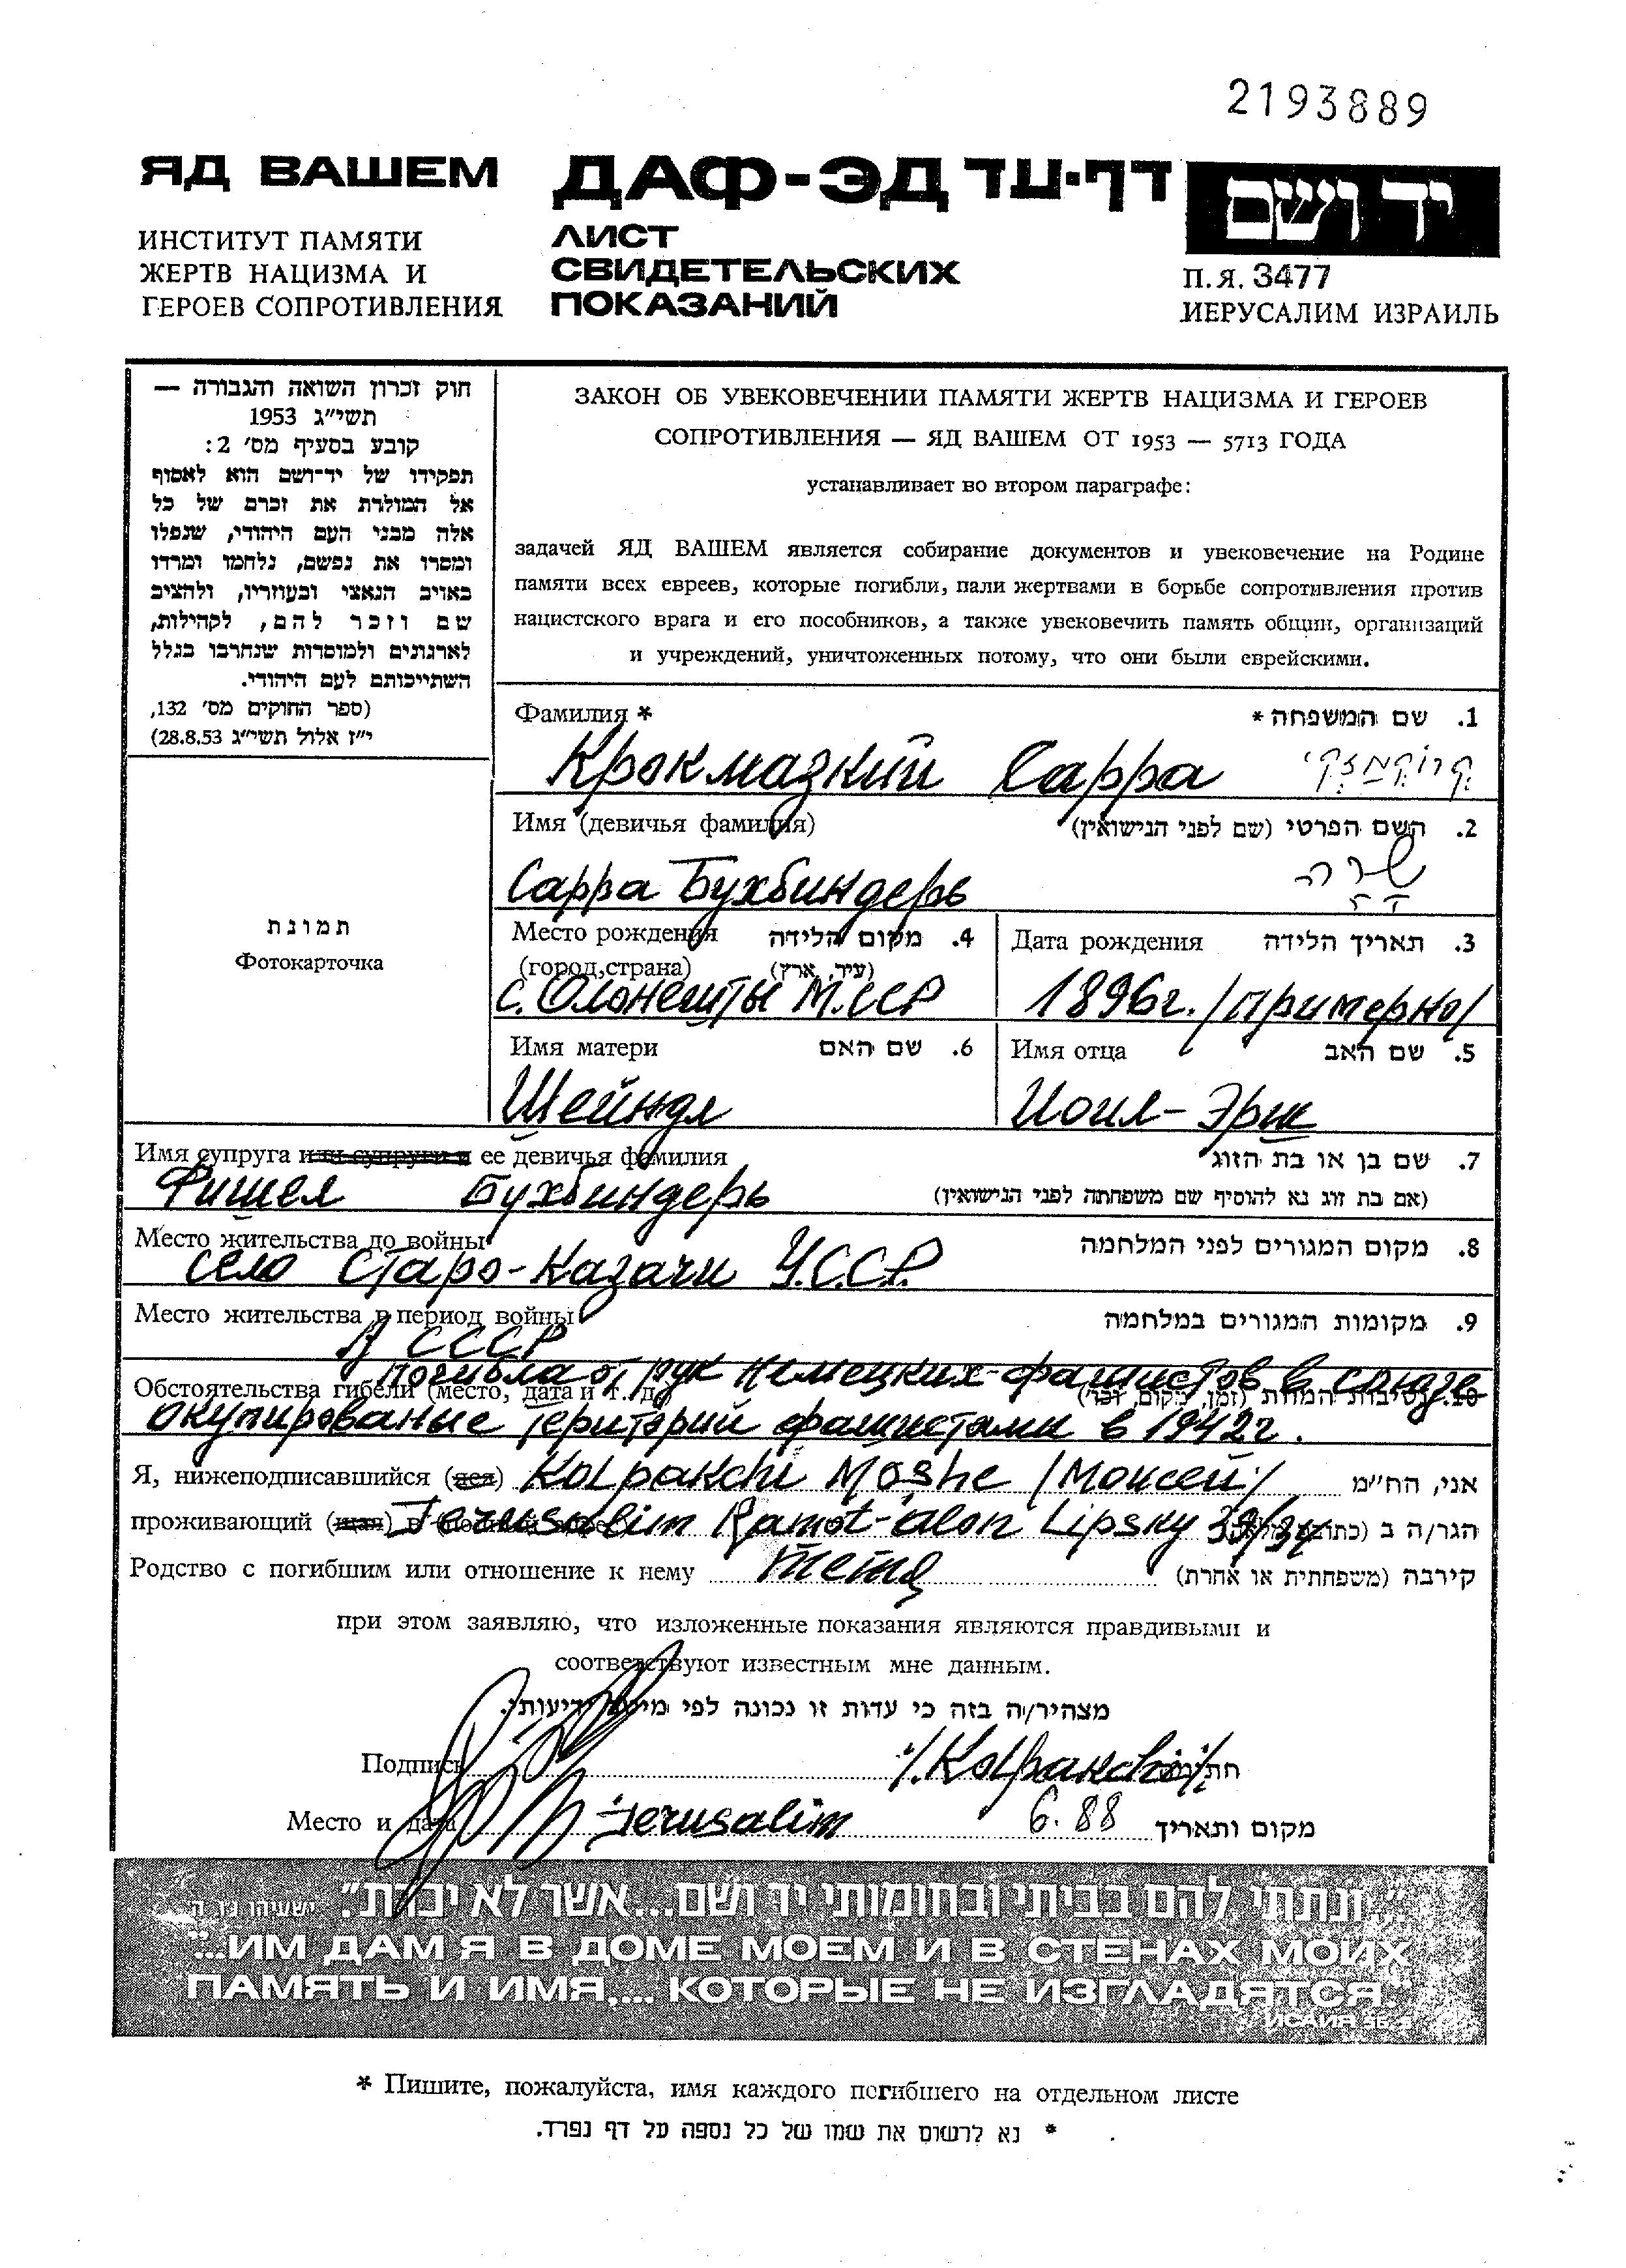 2193889
ЯД ВАШЕМ ДАФ-ЭД דף-עד יד ושם
ИНСТИТУТ ПАМЯТИ
ЖЕРТВ НАЦИЗМА И
ГЕРОЕВ СОПРОТИВЛЕНИЯ
ЛИСТ
СВИДЕТЕЛЬСКИХ
ПОКАЗАНИЙ
П.Я. 3477
ИЕРУСАЛИМ ИЗРАИЛЬ
חוק זכרון השואה והגבורה —
תשי״ג 1953
קובע בסעיף מס׳ 2:
תפקידו של יד-ושם הוא לאסוף
אל המולדת את זכרם של כל
אלה מבני העם היהודי, שנפלו
ומסרו את נפשם, נלחמו ומרדו
באויב הנאצי ובעוזריו, ולהציב
שם וזכר להם, לקהילות,
לארגונים ולמוסדות שנחרבו בגלל
השתייכותם לעם היהודי.
(ספר החוקים מס׳ 132,
י״ז אלול תשי״ג 28.8.53)
תמונת
Фотокарточка
ЗАКОН ОБ УВЕКОВЕЧЕНИИ ПАМЯТИ ЖЕРТВ НАЦИЗМА И ГЕРОЕВ
СОПРОТИВЛЕНИЯ — ЯД ВАШЕМ ОТ 1953 — 5713 ГОДА
устанавливает во втором параграфе:
задачей ЯД ВАШЕМ является собирание документов и увековечение на Родине
памяти всех евреев, которые погибли, пали жертвами в борьбе сопротивления против
нацистского врага и его пособников, а также увековечить память общин, организаций
и учреждений, уничтоженных потому, что они были еврейскими.
Фамилия * 1. שם המשפחה *
Крокмазкий Сарра קרוקמזקי
Имя (девичья фамилия) 2. השם הפרטי (שם לפני הנישואין)
Сарра Бухбиндерь שרה
Место рождения 4. מקום הלידה
(город,страна) (עיר, ארץ)
с. Олонешты М.ССР
Дата рождения 3. תאריך הלידה
1896г. /примерно/
Имя матери 6. שם האם
Шейндл
Имя отца 5. שם האב
Иоил-Эрш
Имя супруга или супруги и ее девичья фамилия 7. שם בן או בת הזוג
Фишел Бухбиндерь (אם בת זוג נא להוסיף שם משפחתה לפני הנישואין)
Место жительства до войны 8. מקום המגורים לפני המלחמה
село Старо-Казачи У.С.С.Р.
Место жительства в период войны 9. מקומות המגורים במלחמה
В СССР
погибла от рук немецких-фашистов в союзе
Обстоятельства гибели (место, дата и т. д.) 10. נסיבות המות (זמן, מקום, וכו׳)
окупированые територий фашистами в 1942г.
Я, нижеподписавшийся (ася) Kolpakchi Moshe /Моисей/ אני, הח״מ
проживающий (щая) в Jerusalim Ramot-alon Lipsky 39/34 הגר/ה ב
Родство с погибшим или отношение к нему тетя קירבה (משפחתית או אחרת)
при этом заявляю, что изложенные показания являются правдивыми и
соответствуют известным мне данным.
מצהיר/ה בזה כי עדות זו נכונה לפי מיטב ידיעותי.
Подпись /.Kolpakchi/.
Место и дата Jerusalim 6. 88 מקום ותאריך
"ונתתי להם בביתי ובחומותי יד ושם...אשר לא יכרת." ישעיהו נו ה
"...ИМ ДАМ Я В ДОМЕ МОЕМ И В СТЕНАХ МОИХ
ПАМЯТЬ И ИМЯ,... КОТОРЫЕ НЕ ИЗГЛАДЯТСЯ."
ИСАИЯ 56.5
* Пишите, пожалуйста, имя каждого погибшего на отдельном листе
* נא לרשום את שמו של כל נספה על דף נפרד.